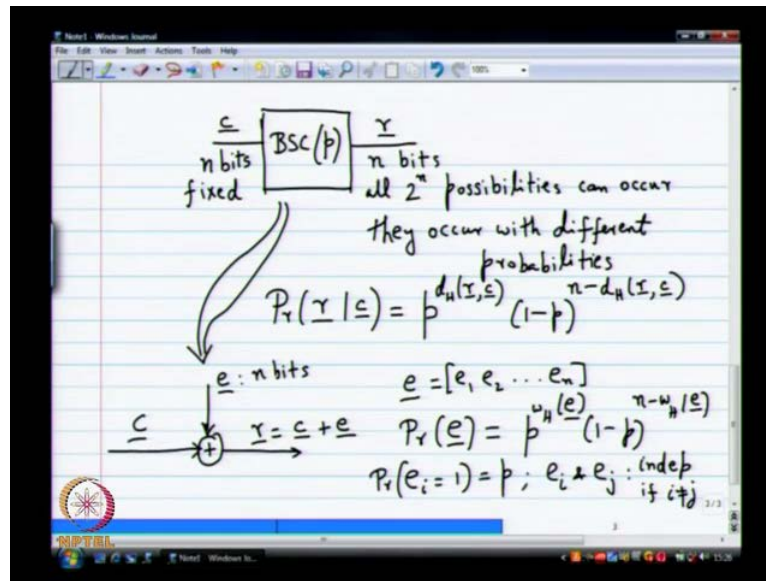 Note1 - Windows Journal
File Edit View Insert Actions Tools Help
100%
c BSC(p) r
n bits n bits
fixed all 2^n possibilities can occur
they occur with different
probabilities
Pr(r | c) = p^{d_H(r, c)} (1-p)^{n-d_H(r, c)}
e : n bits e = [e_1 e_2 ... e_n]
c + r = c + e Pr(e) = p^{w_H(e)} (1-p)^{n-w_H(e)}
Pr(e_i = 1) = p ; e_i & e_j : indep
if i≠j
3/3
3
NPTEL
Note1 - Windows Jo...
15:26